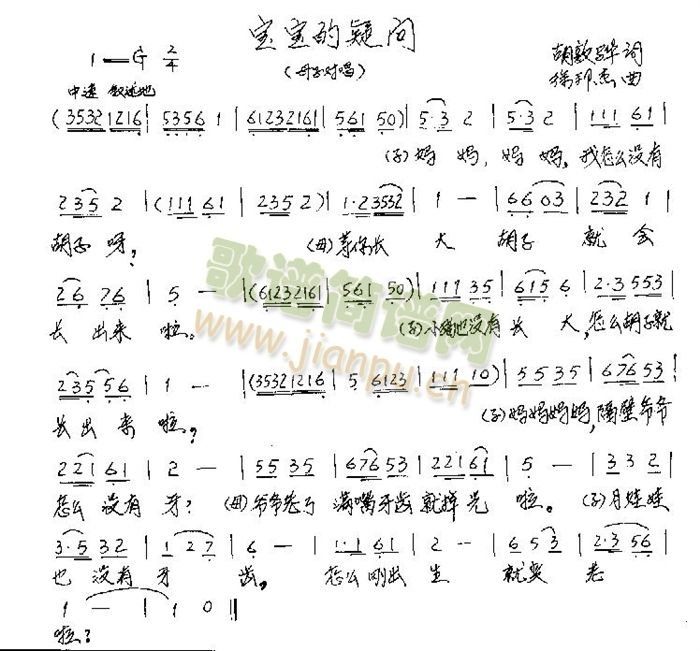 宝宝的疑问
1=G 2/4
(母子对唱)
词
曲
中速 叙述地
(3532 1216 | 5356 1 | 61232161 | 561 50) | 5·3 2 | 5·32 | 111 61 |
(子)妈 妈, 妈 妈, 我怎么没有
235 2 | (111 61 | 235 2) | 1·2 3532 | 1 — | 66 03 | 232 1 |
胡子 呀? (母)等你长 大 胡子 就 会
26 76 | 5 — | (61232161 | 561 50) | 111 35 | 615 6 | 2·3 553 |
长 出来 啦。 (子)小猫也没有 长 大, 怎么胡子就
235 56 | 1 — | (35321216 | 5 6123 | 111 10) | 55 35 | 6765 3 |
长 出 来 啦? (子)妈妈妈妈, 隔壁爷爷
221 61 | 2 — | 55 35 | 67653 | 22161 | 5 — | 33 2 |
怎么 没有 牙? (母)爷爷老了 满嘴牙齿就掉光 啦。 (子)月娃娃
3·5 32 | 1 27 | 6 — | 1·1 61 | 2 — | 6 53 | 2·3 56 |
也 没有 牙 齿, 怎么刚出 生 就变 老
1 — | 1 0 ‖
啦?
歌谱简谱网
www.jianpu.cn